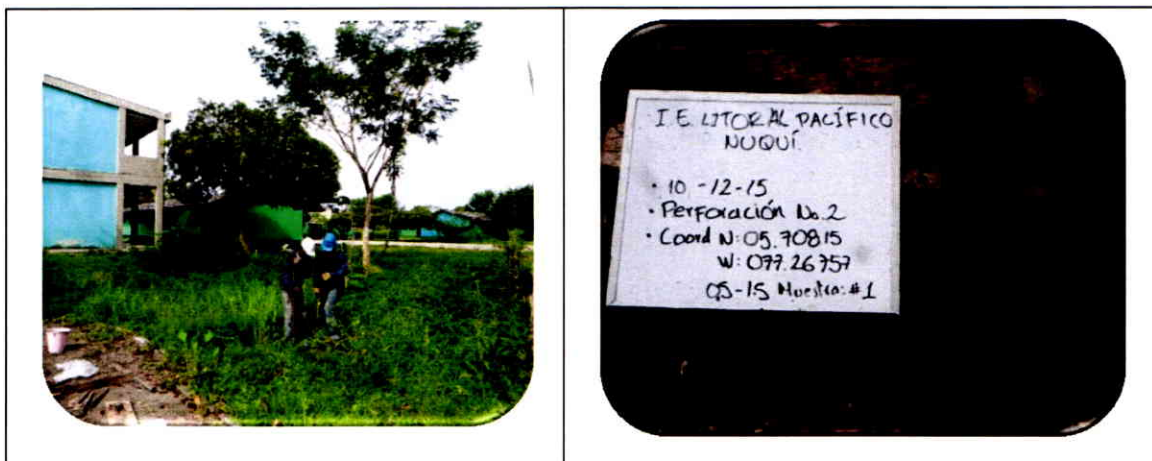 I.E. LITORAL PACÍFICO
NUQUÍ.
• 10 -12-15
• Perforación No.2
• Coord N: 05.70815
W: 077.26757
0,5-1.5 Muestra: #1